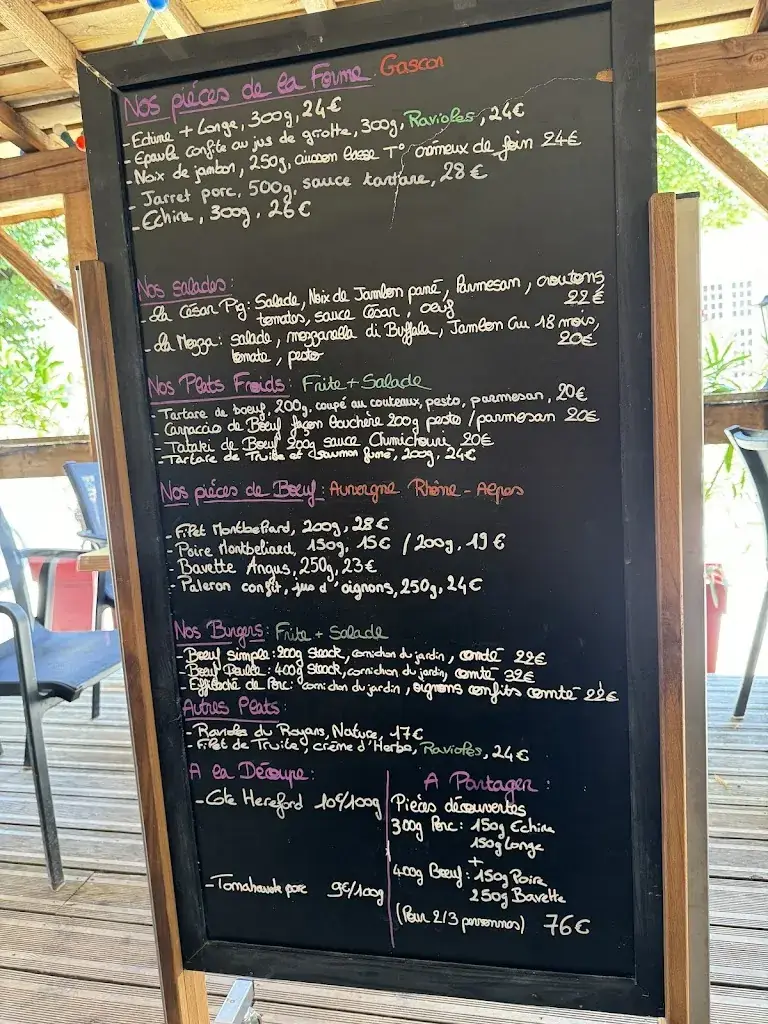 Nos pièces de la Ferme Gascon
- Echine + Longe, 300g, 24€
- Epaule confite au jus de grotte, 300g, Ravioles, 24€
- Noix de jambon, 250g, cuisson basse T° crémeux de foin 24€
- Jarret porc, 500g, sauce tartare, 28€
- Echine, 300g, 26€
Nos salades:
- La César Pig: Salade, Noix de Jambon pané, Parmesan, croutons
tomates, sauce César, oeuf 22€
- La Mozza: salade, mozzarella di Buffala, Jambon Cru 18 mois,
tomate, pesto 20€
Nos Plats Froids: Frite + Salade
- Tartare de boeuf, 200g, coupé au couteaux, pesto, parmesan, 20€
- Carpaccio de Boeuf façon bouchère 200g pesto / parmesan 20€
- Tataki de Boeuf 200g sauce Chimichouri 20€
- Tartare de Truite et saumon fumé, 200g, 24€
Nos pièces de Boeuf: Auvergne Rhône-Alpes
- Filet Montbeliard, 200g, 28€
- Poire Montbeliard, 150g, 15€ / 200g, 19€
- Bavette Angus, 250g, 23€
- Paleron confit, jus d'oignons, 250g, 24€
Nos Burgers: Frite + Salade
- Boeuf simple: 200g steack, cornichon du jardin, comté 22€
- Boeuf Double: 400g steack, cornichon du jardin, comté 32€
- Effiloché de Porc: cornichon du jardin, oignons confits comté 22€
Autres Plats:
- Ravioles du Royans, Nature, 17€
- Filet de Truite, crème d'Herbe, Ravioles, 24€
A la Découpe:
- Côte Hereford 10€/100g
- Tomahawk porc 9€/100g
A Partager:
Pièces découvertes
300g Porc: 150g Echine
150g Longe
+
400g Boeuf: 150g Poire
250g Bavette
(Pour 2/3 personnes) 76€